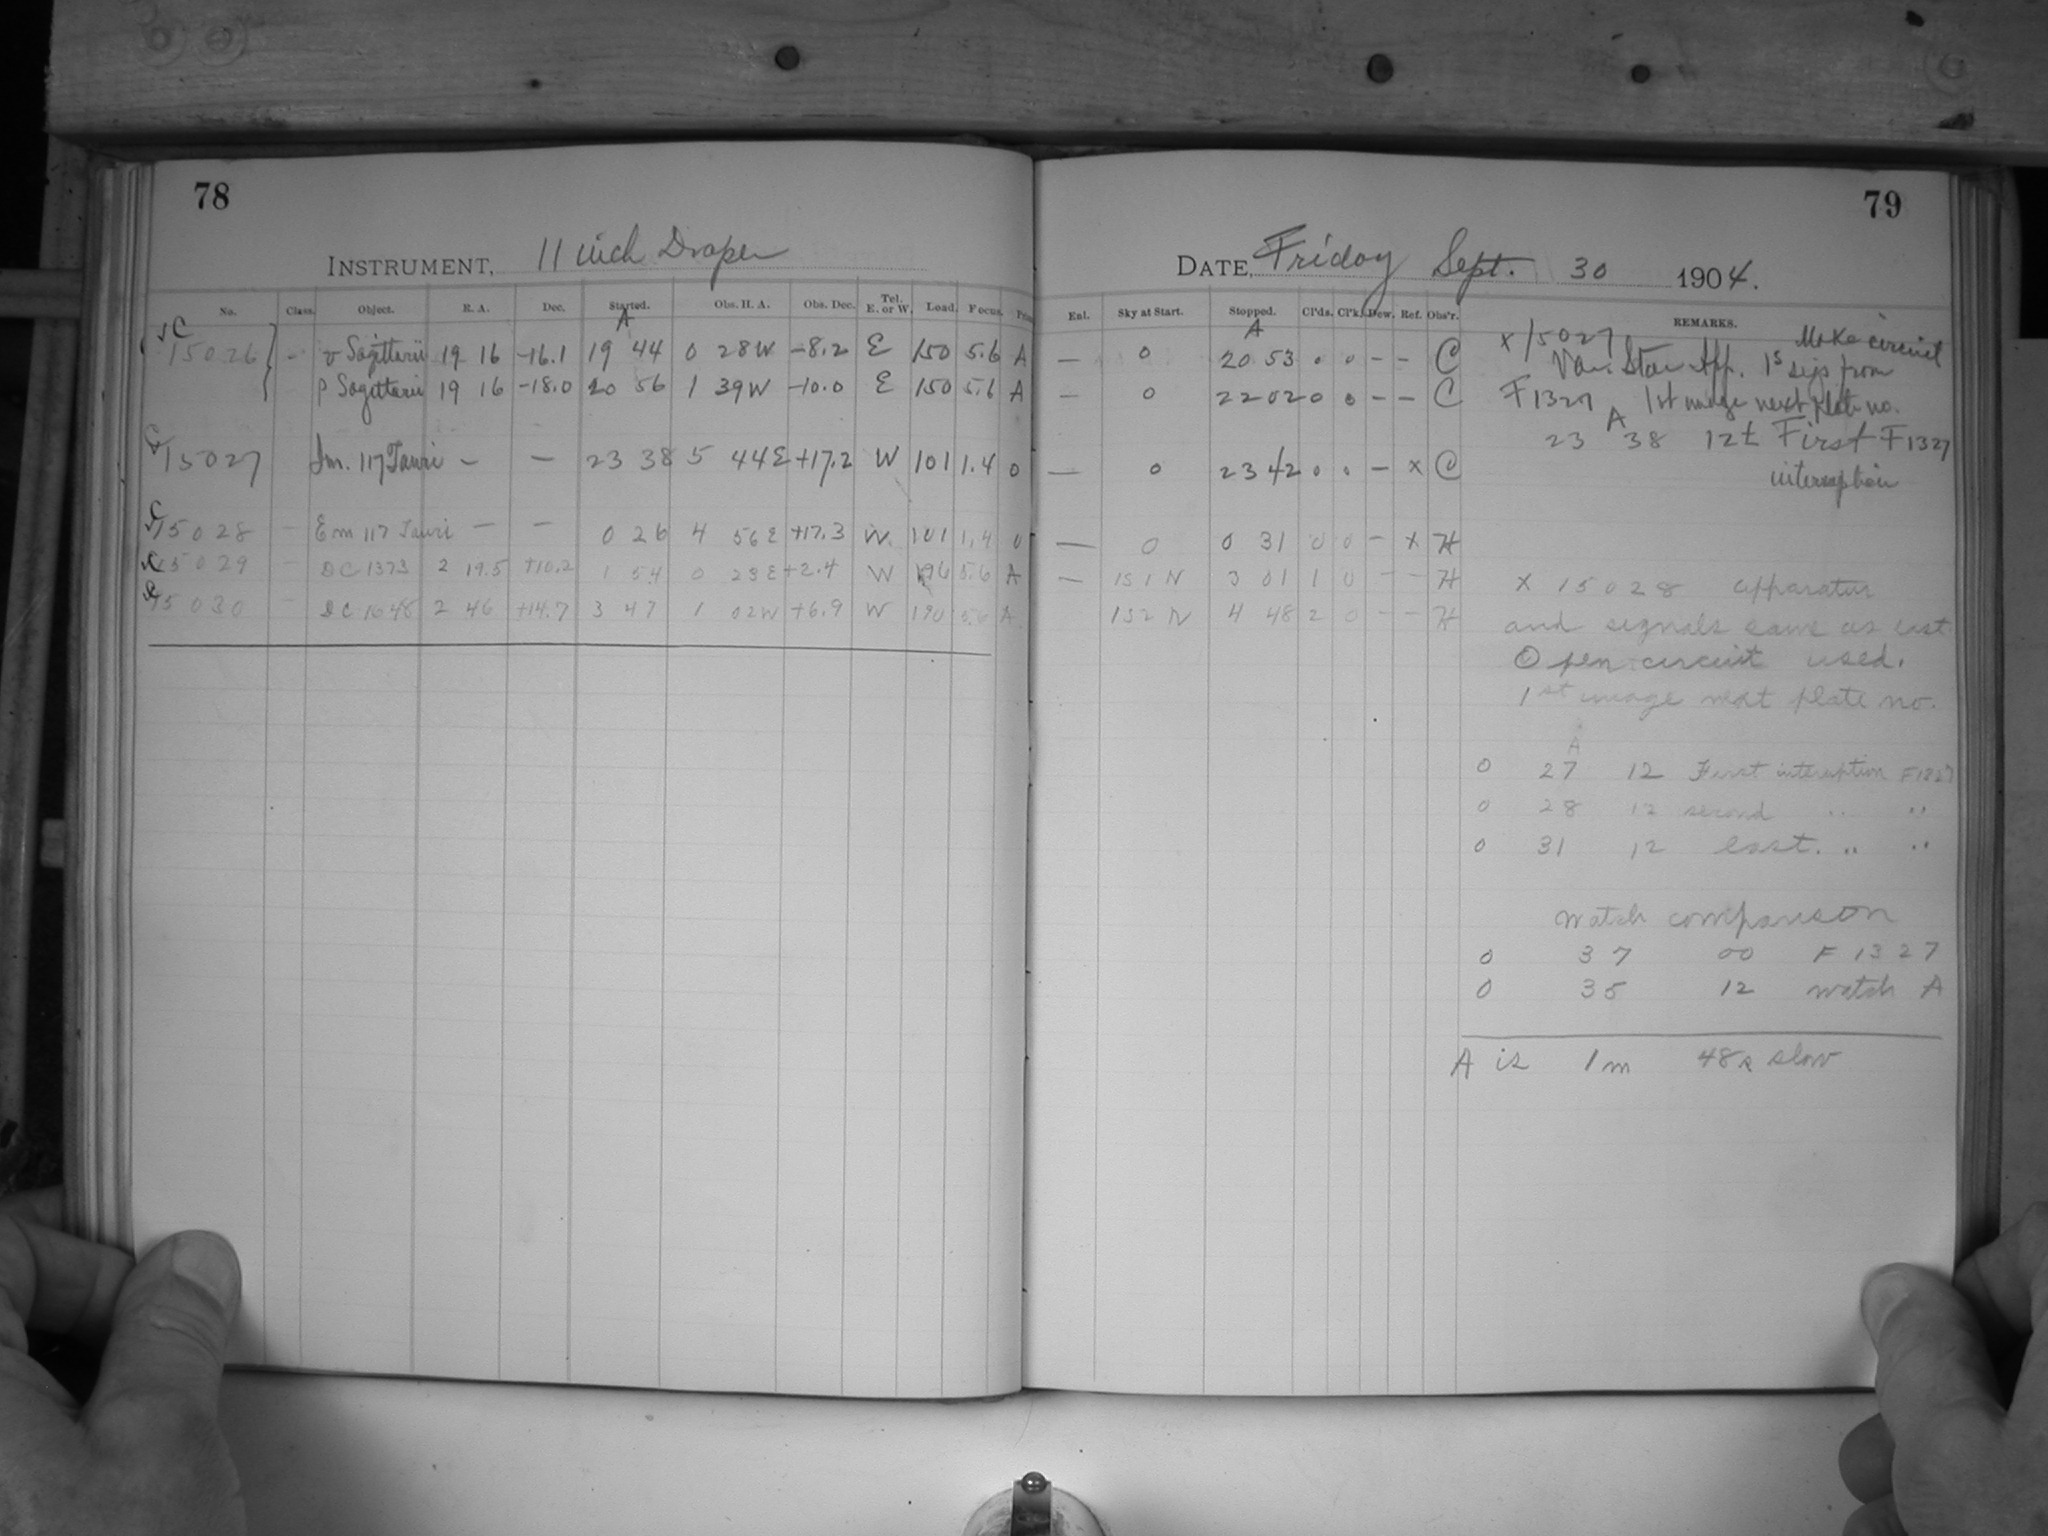 78
INSTRUMENT, 11 inch Draper
No. Class. Object. R. A. Dec. Started. Obs. H. A. Obs. Dec. Tel. E. or W. Load. Focus.
A
C 15026 - υ Sagittarii 19 16 -16.1 19 44 0 28W -8.2 E 150 5.6 A
ρ Sagittarii 19 16 -18.0 20 56 1 39W -10.0 E 150 5.6 A
C 15027 Im. 117 Tauri - - 23 38 5 44E +17.2 W 101 1.4 0
C 15028 - Em 117 Tauri - - 0 26 4 56E +17.3 W. 101 1.4 0
C 15029 - DC 1373 2 19.5 +10.2 1 54 0 23E +2.4 W 196 5.6 A
15030 - DC 1648 2 46 +14.7 3 47 1 02W +6.9 W 190 5.6 A
79
DATE, Friday Sept. 30 1904.
Enl. Sky at Start. Stopped. Cl'ds. Cl'k. Dew. Ref. Obs'r. REMARKS.
A
— 0 20 53 0 0 - - C
— 0 22 02 0 0 - - C
— 0 23 42 0 0 - x C
— 0 0 31 0 0 - x H
— 151 N 3 01 1 0 - - H
152 N 4 48 2 0 - - H
x 15027 Make circuit
Var. Star App. 1s sigs from
F1327 1st image next plate no.
A
23 38 12t First F1327
interruption
x 15028 apparatus
and signals same as last
Open circuit used.
1st image next plate no.
A
0 27 12 First interuption F1327
0 28 12 second " "
0 31 12 last. " "
Watch comparison
0 37 00 F 1327
0 35 12 watch A
A is 1m 48s slow